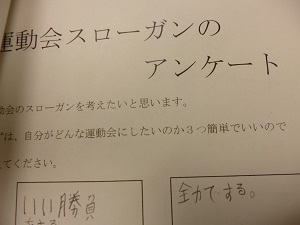 運動会スローガンの
アンケート
動会のスローガンを考えたいと思います。
は、自分がどんな運動会にしたいのか３つ簡単でいいので
てください。
いい勝負
全力でする。